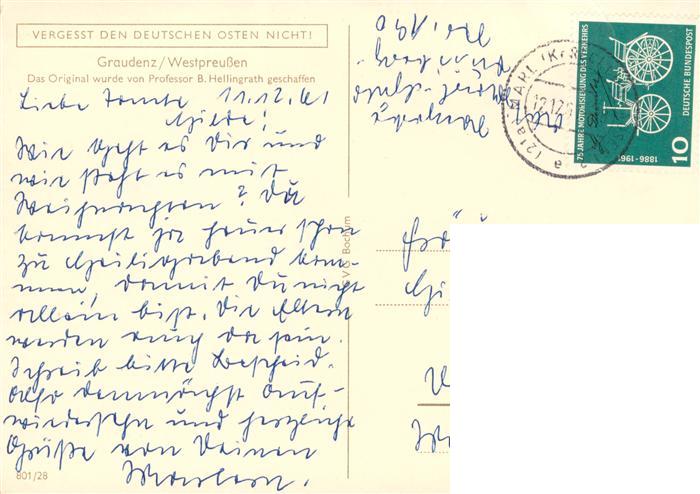 VERGESST DEN DEUTSCHEN OSTEN NICHT!
Graudenz/Westpreußen
Das Original wurde von Professor B. Hellingrath geschaffen
Liebe Tante 11.12.61
Hilde!
Wie geht es Dir und
wie steht es mit
Weihnachten? Du
kommst ja heuer schon
zu Heiligabend kom-
men, damit Du nicht
allein bist. Die Eltern
werden auch da sein.
Schreib bitte Bescheid.
Also demnächst Auf-
wiedersehn und herzliche
Grüße von Deinen
801/28
VG Bochum
MARL
(21a)
12.12.6
a
75 JAHRE MOTORISIERUNG DES VERKEHRS
1886-1961
DEUTSCHE BUNDESPOST
10